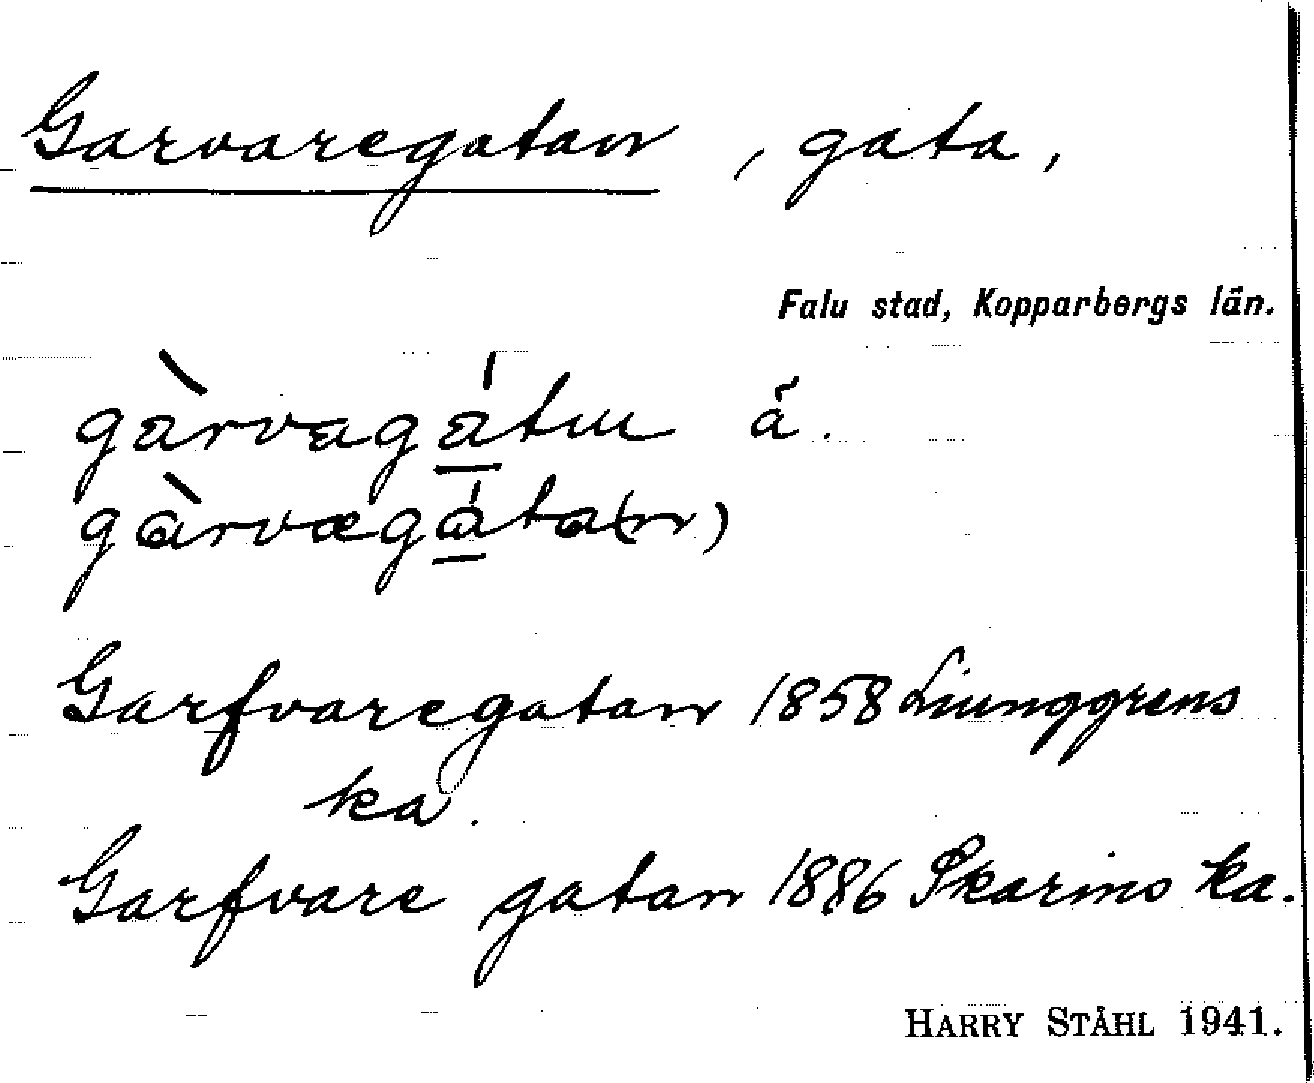 Garvaregatan, gata,
Falu stad, Kopparbergs län.
gàrvagátɯ ä.
gàrvægáta(n)
Garfvaregatan 1858 Ljunggrens
ka.
Garfvare gatan 1886 Skarins ka.
HARRY STÅHL 1941.